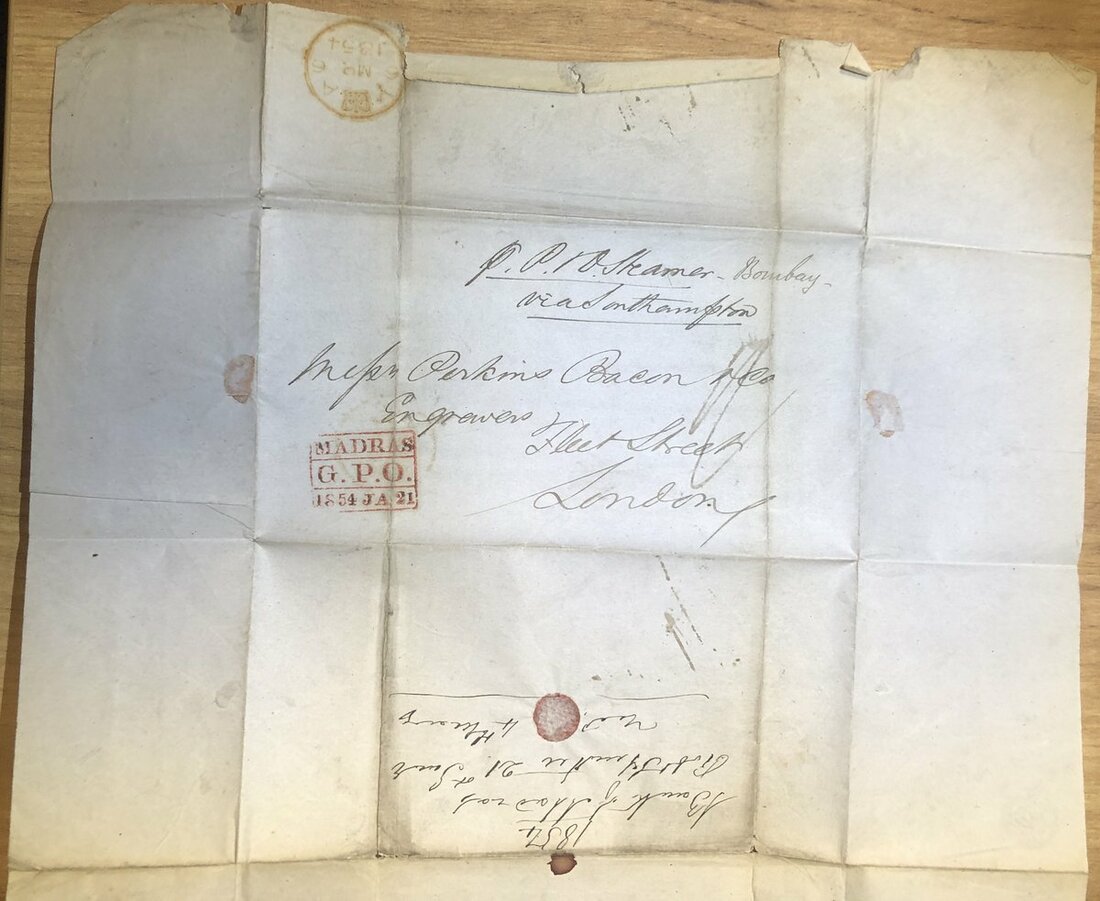 1854
MR 6
p. P. & O. Steamer - Bombay -
via Southampton
Messrs Perkins Bacon & Co
Engravers
Fleet Street
London
MADRAS
G.P.O.
1854 JA 21
1854
Bank of Madras
21st Jan